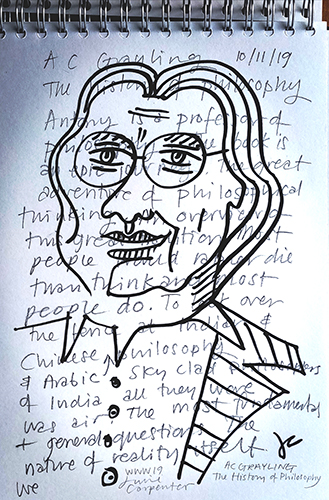 A C Grayling 10/11/19
The History of Philosophy
Antony is a professor of
book is
an epic The great
adventure of philosophical
thinking overview of
this great
people would rather die
than think and most
people do. To over
the fence at Indian &
Chinese philosophy
& Arabic, sky clad philosophers
of India all they wore
was air. The most fundamental
+ general questions. The
nature of reality itself
We
WWW19
June
Carpenter
JC
AC GRAYLING
The History of Philosophy